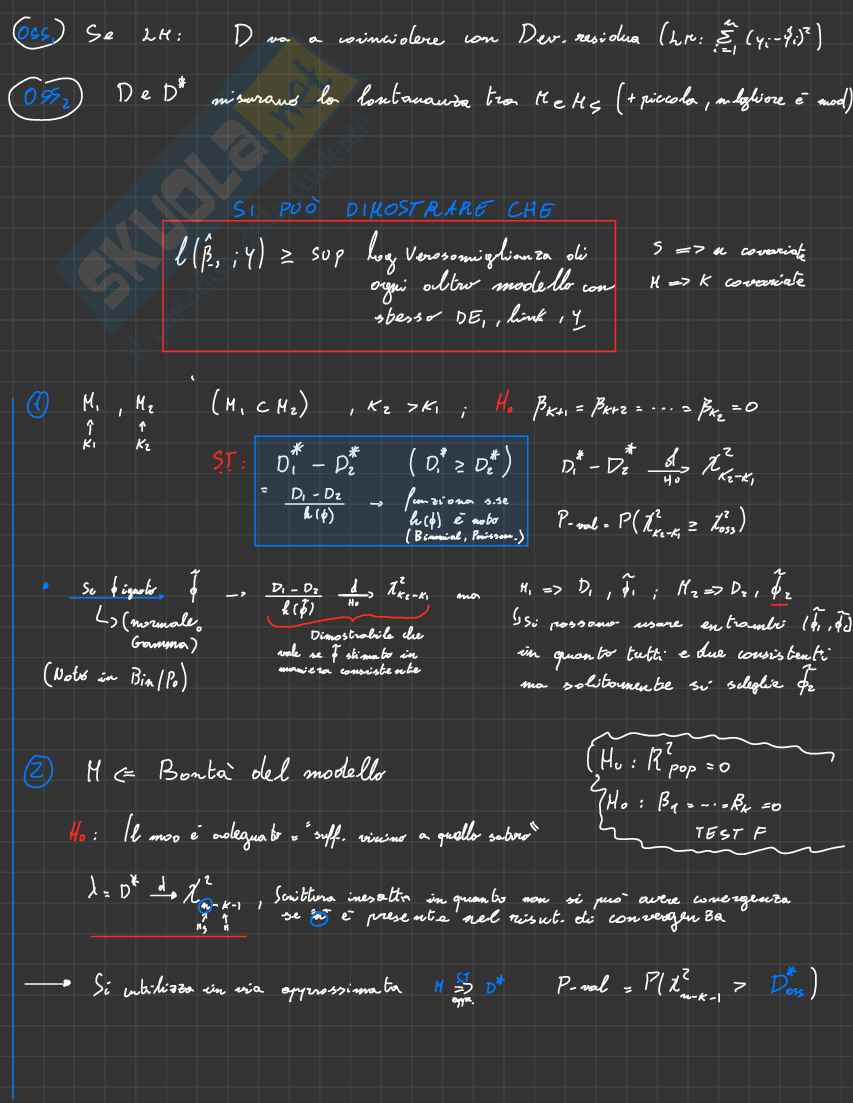 OSS₁ Se LM: D va a coincidere con Dev. residua (LM: Σᵢ₌₁ⁿ (yᵢ-ŷᵢ)²)
OSS₂ D e D* misurano la lontananza tra M e Ms (+ piccola, migliore è mod)
SKUOLA.net
SI PUÒ DIMOSTRARE CHE
l(β̂s ; y) ≥ sup log Verosomiglianza di
ogni altro modello con
stesso DE₁, link, y
S => n covariate
M => K covariate
① M₁, M₂ (M₁ ⊂ M₂), K₂ > K₁ ; H₀ βK+1 = βK+2 = ... = βK₂ = 0
↑ ↑
K₁ K₂
ST: D₁* - D₂* (D₁* ≥ D₂*)
= (D₁ - D₂)/h(φ) → funziona s.se
h(φ) è noto
(Binomial, Poisson.)
D₁* - D₂* →ᵈ H₀ χ²K₂-K₁
P-val = P(χ²K₂-K₁ ≥ χ²oss)
• Se φ ignoto φ̃ → (D₁ - D₂)/h(φ̃) →ᵈ H₀ χ²K₂-K₁ ma
↳ (normale,
Gamma)
(Noto in Bin/Po)
Dimostrabile che
vale se φ̃ stimato in
maniera consistente
M₁ => D₁, φ̃₁ ; M₂ => D₂, φ̃₂
↳ Si possono usare entrambi (φ̃₁, φ̃₂)
in quanto tutti e due consistenti
ma solitamente si sceglie φ̃₂
② M <= Bontà del modello
H₀ : R²pop = 0
H₀ : β₁ = ... = βK = 0
TEST F
H₀ : Il mod è adeguato = "suff. vicino a quello saturo"
λ = D* →ᵈ χ²n-K-1, Scrittura inesatta in quanto non si può avere convergenza
↑ ↑
Ms M
se "n" è presente nel risult. di convergenza
→ Si utilizza in via approssimata M ST => appr. D* P-val = P(χ²n-K-1 > D*oss)